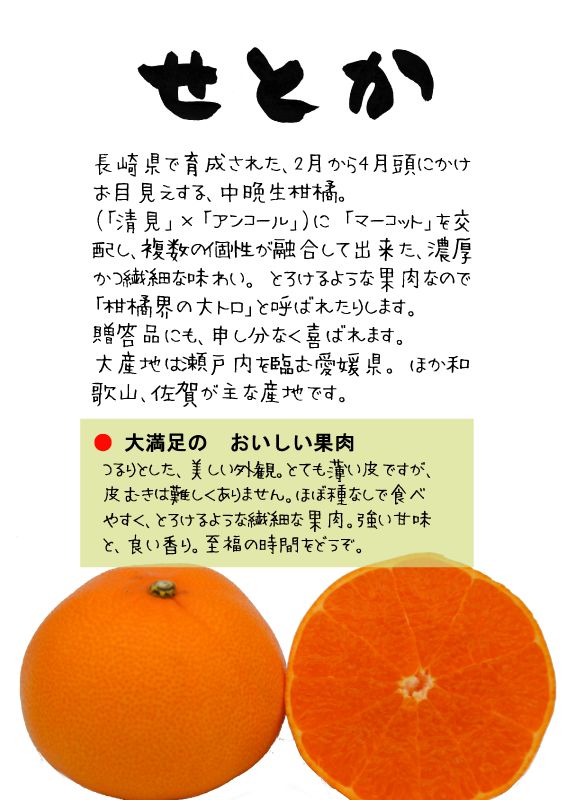 せとか
長崎県で育成された、2月から4月頭にかけ
お目見えする、中晩生柑橘。
(「清見」×「アンコール」)に「マーコット」を交
配し、複数の個性が融合して出来た、濃厚
かつ繊細な味わい。とろけるような果肉なので
「柑橘界の大トロ」と呼ばれたりします。
贈答品にも、申し分なく喜ばれます。
大産地は瀬戸内を臨む愛媛県。ほか和
歌山、佐賀が主な産地です。
● 大満足の おいしい果肉
つるりとした、美しい外観。とても薄い皮ですが、
皮むきは難しくありません。ほぼ種なしで食べ
やすく、とろけるような繊細な果肉。強い甘味
と、良い香り。至福の時間をどうぞ。